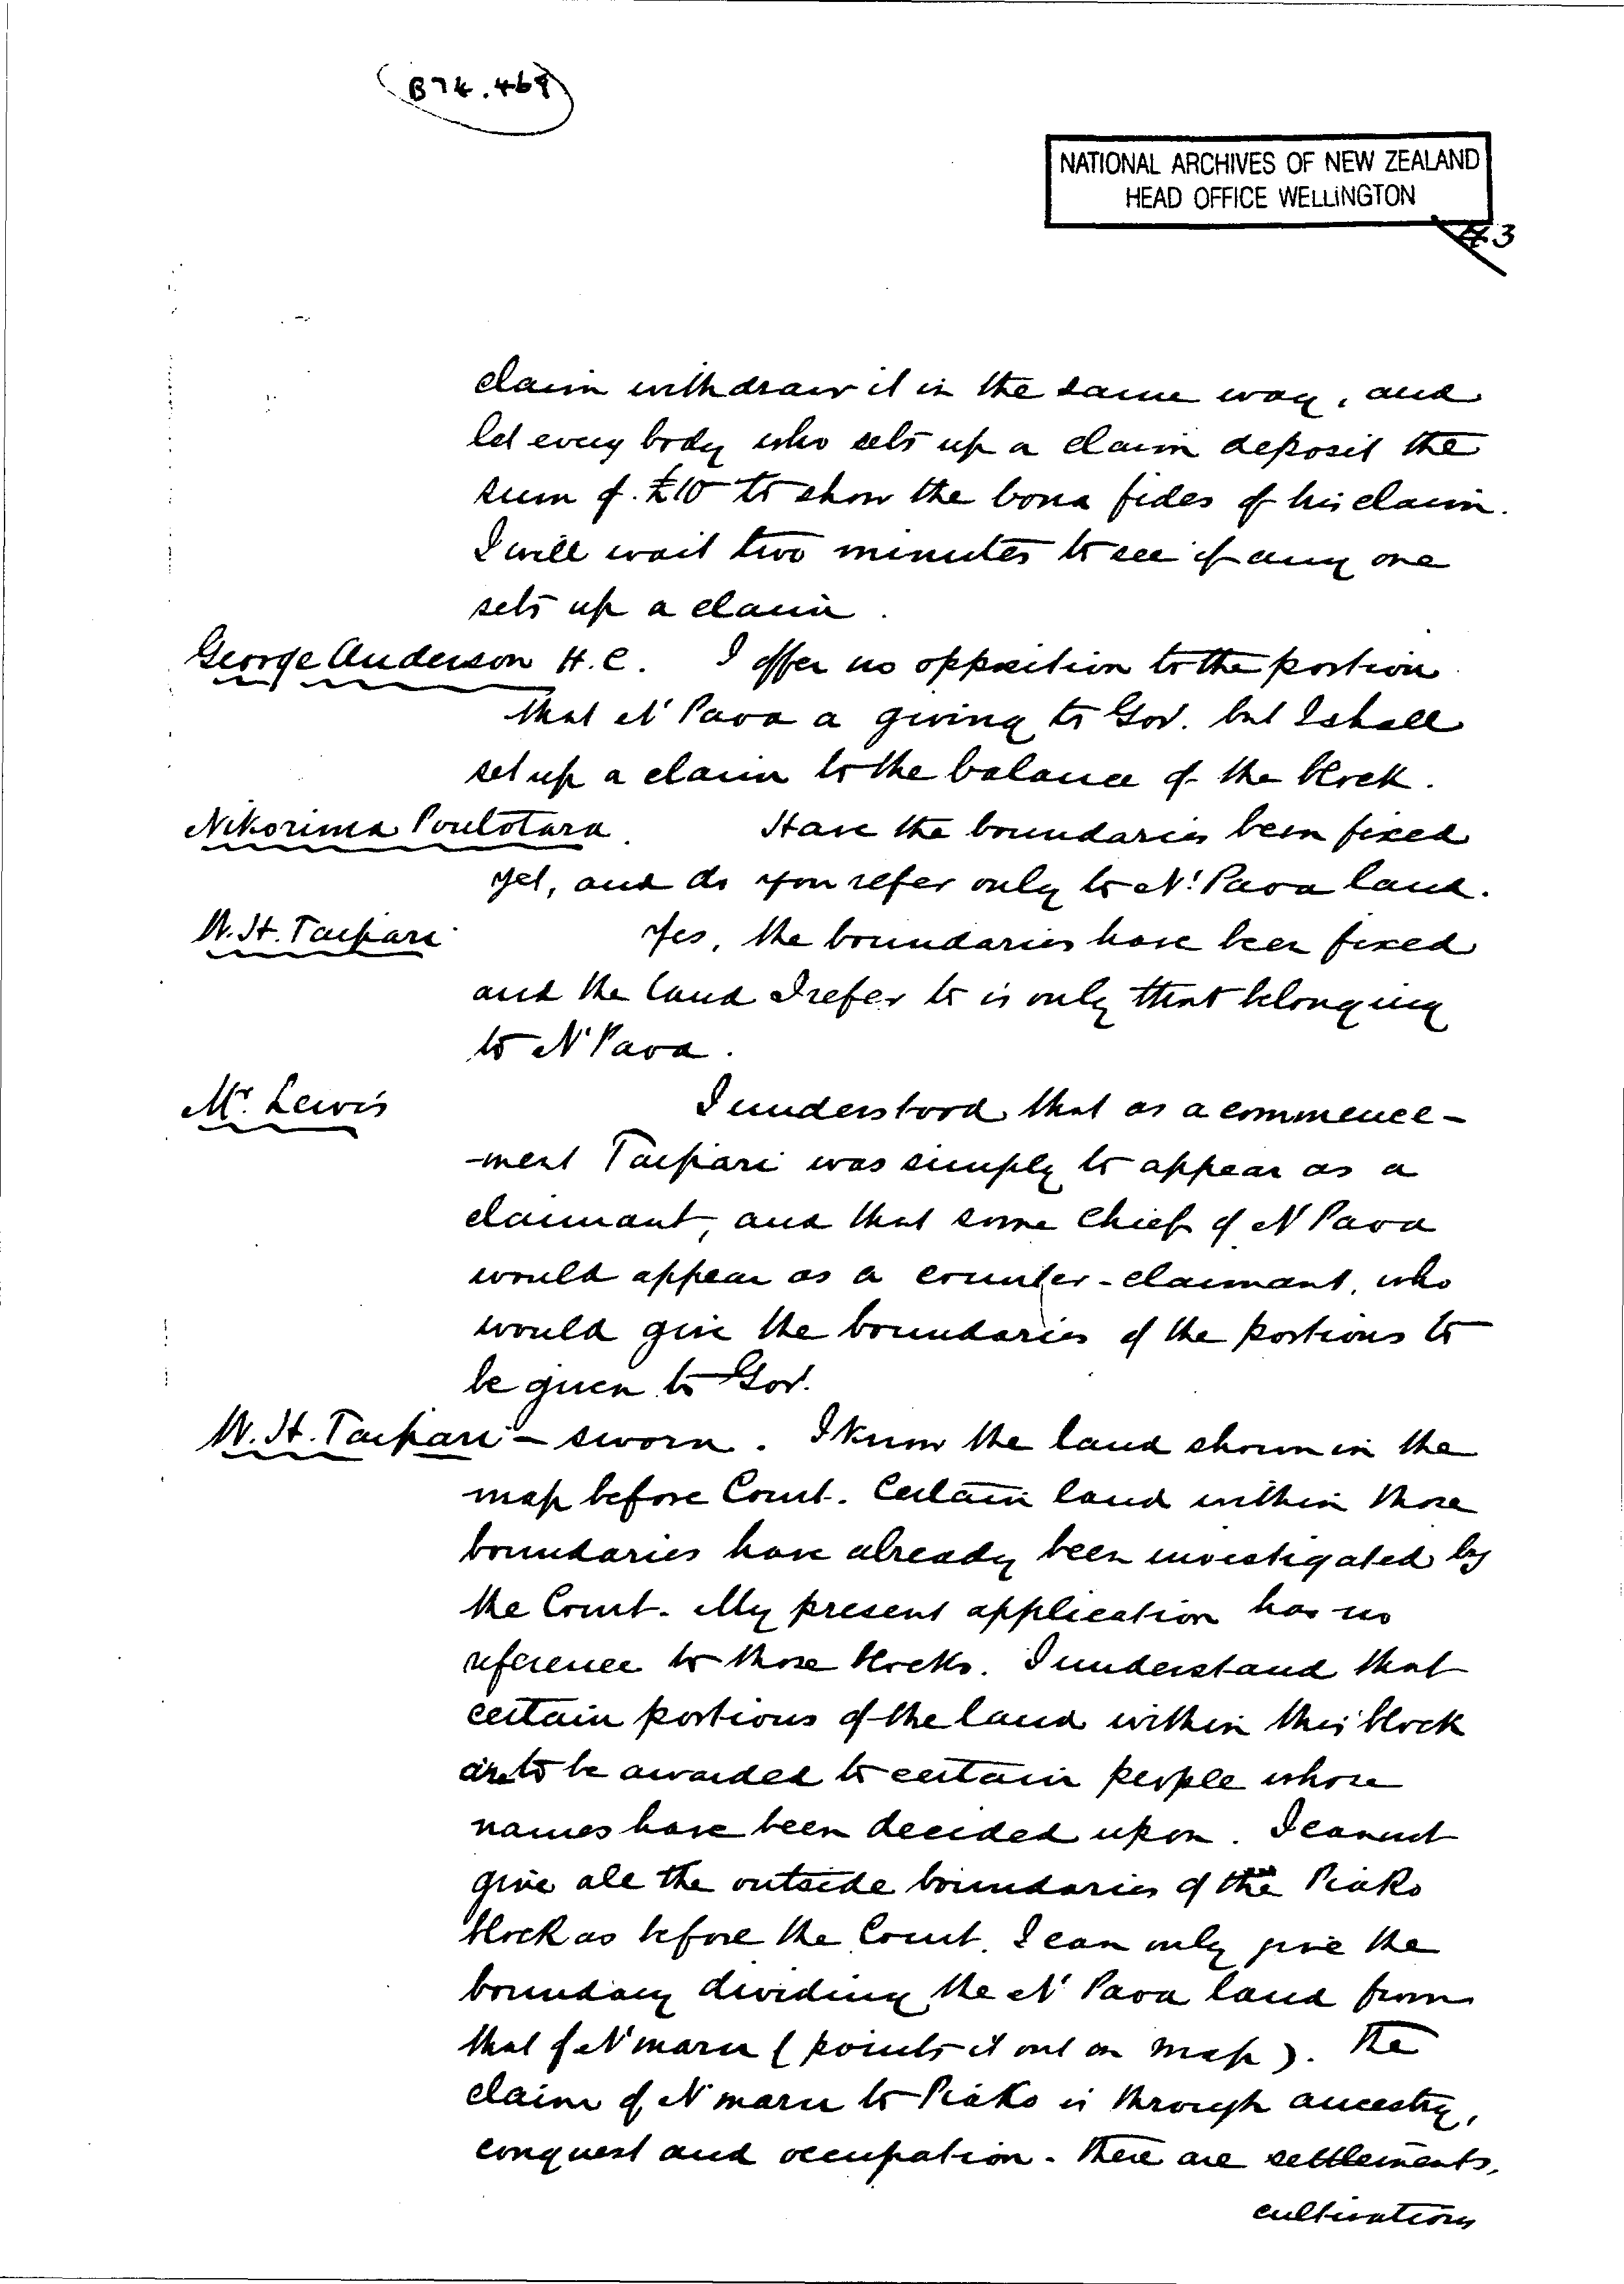 B74.469
NATIONAL ARCHIVES OF NEW ZEALAND
HEAD OFFICE WELLINGTON
3
claim withdraw it in the same way, and
let every body who sets up a claim deposit the
sum of £10 to show the bona fides of his claim.
I will wait two minutes to see if any one
sets up a claim.
George Anderson H.C. I offer no opposition to the portion
that N' Paoa a giving to Gov. but I shall
set up a claim to the balance of the block.
Nikorima Poutotara. Have the boundaries been fixed
yet, and do you refer only to N' Paoa land.
W.H. Taipari Yes, the boundaries have been fixed
and the land I refer to is only that belonging
to N' Paoa.
Mr. Lewis I understood that as a commence-
-ment Taipari was simply to appear as a
claimant, and that some Chief of N Paoa
would appear as a counter-claimant, who
would give the boundaries of the portions to
be given to Gov.
W.H. Taipari - sworn. I know the land shown in the
map before Court. Certain land within those
boundaries have already been investigated by
the Court. My present application has no
reference to those blocks. I understand that
certain portions of the land within this block
are to be awarded to certain people whose
names have been decided upon. I cannot
give all the outside boundaries of the Piako
block as before the Court. I can only give the
boundary dividing the N' Paoa land from
that of N'maru (points it out on map). The
claim of N'maru to Piako is through ancestry,
conquest and occupation. There are settlements,
cultivations